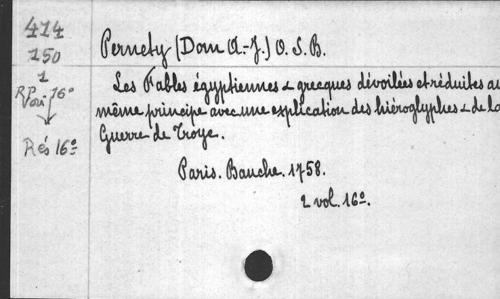 414
150
1
RP
Voir 16º
Rés 16º
Pernety (Dom A.-J.) O. S. B.
Les Fables égyptiennes & grecques dévoilées et réduites au
même principe avec une explication des hiéroglyphes & de la
Guerre de Troye.
Paris. Bauche. 1758.
2 vol. 16º.